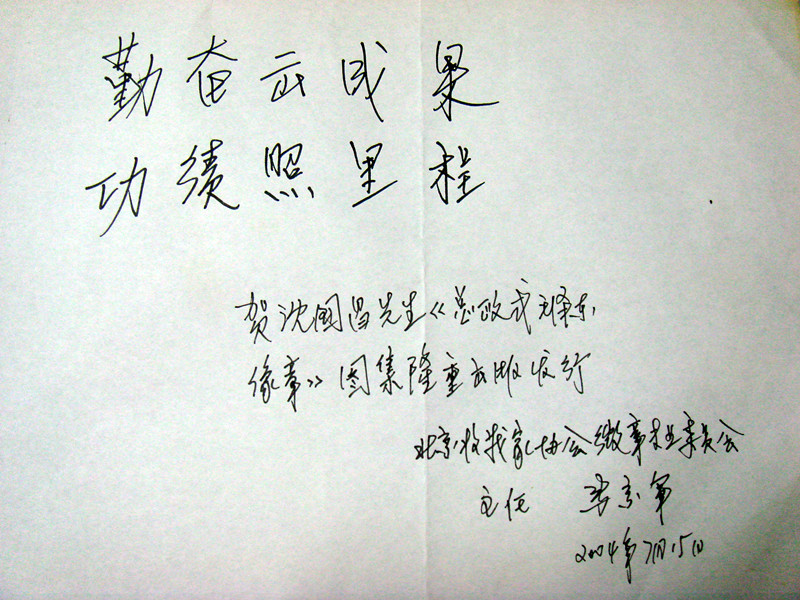 勤奋出成果
功绩照里程
贺沈国昌先生《总政式毛泽东
像章》图集隆重出版发行
北京收藏家协会徽章专业委员会
主任 李京军
2004年7月15日